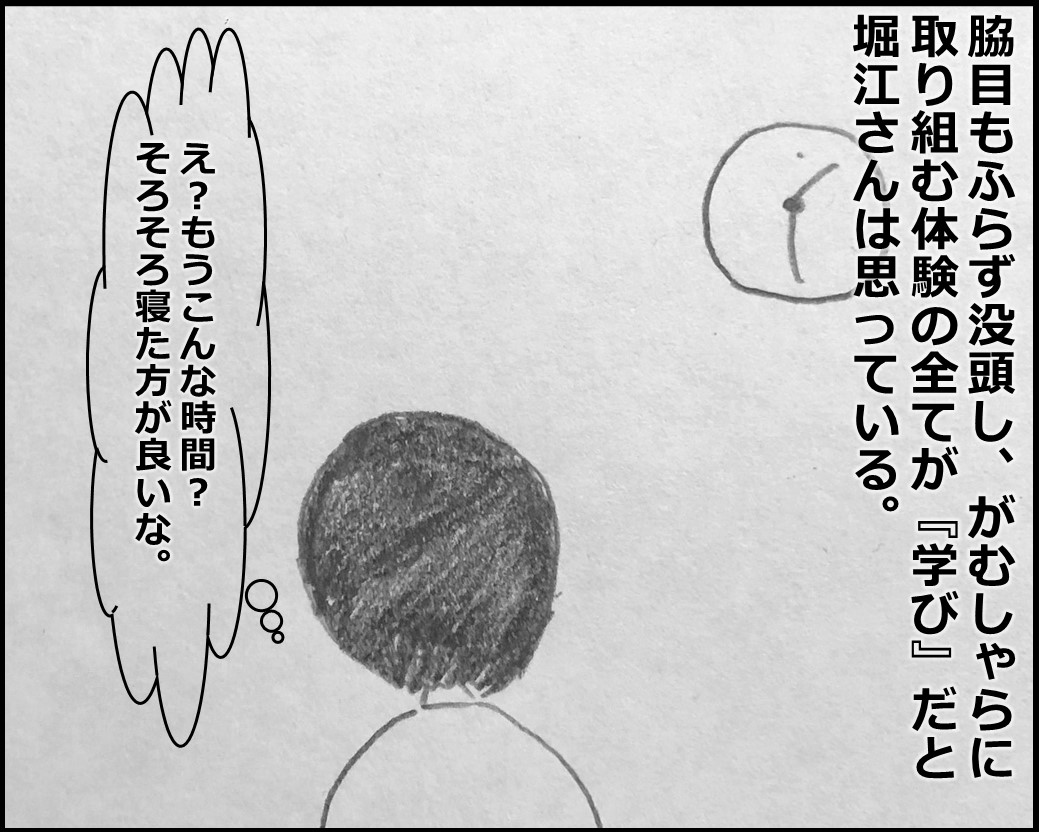 脇目もふらず没頭し、がむしゃらに
取り組む体験の全てが『学び』だと
堀江さんは思っている。
え?もうこんな時間?
そろそろ寝た方が良いな。